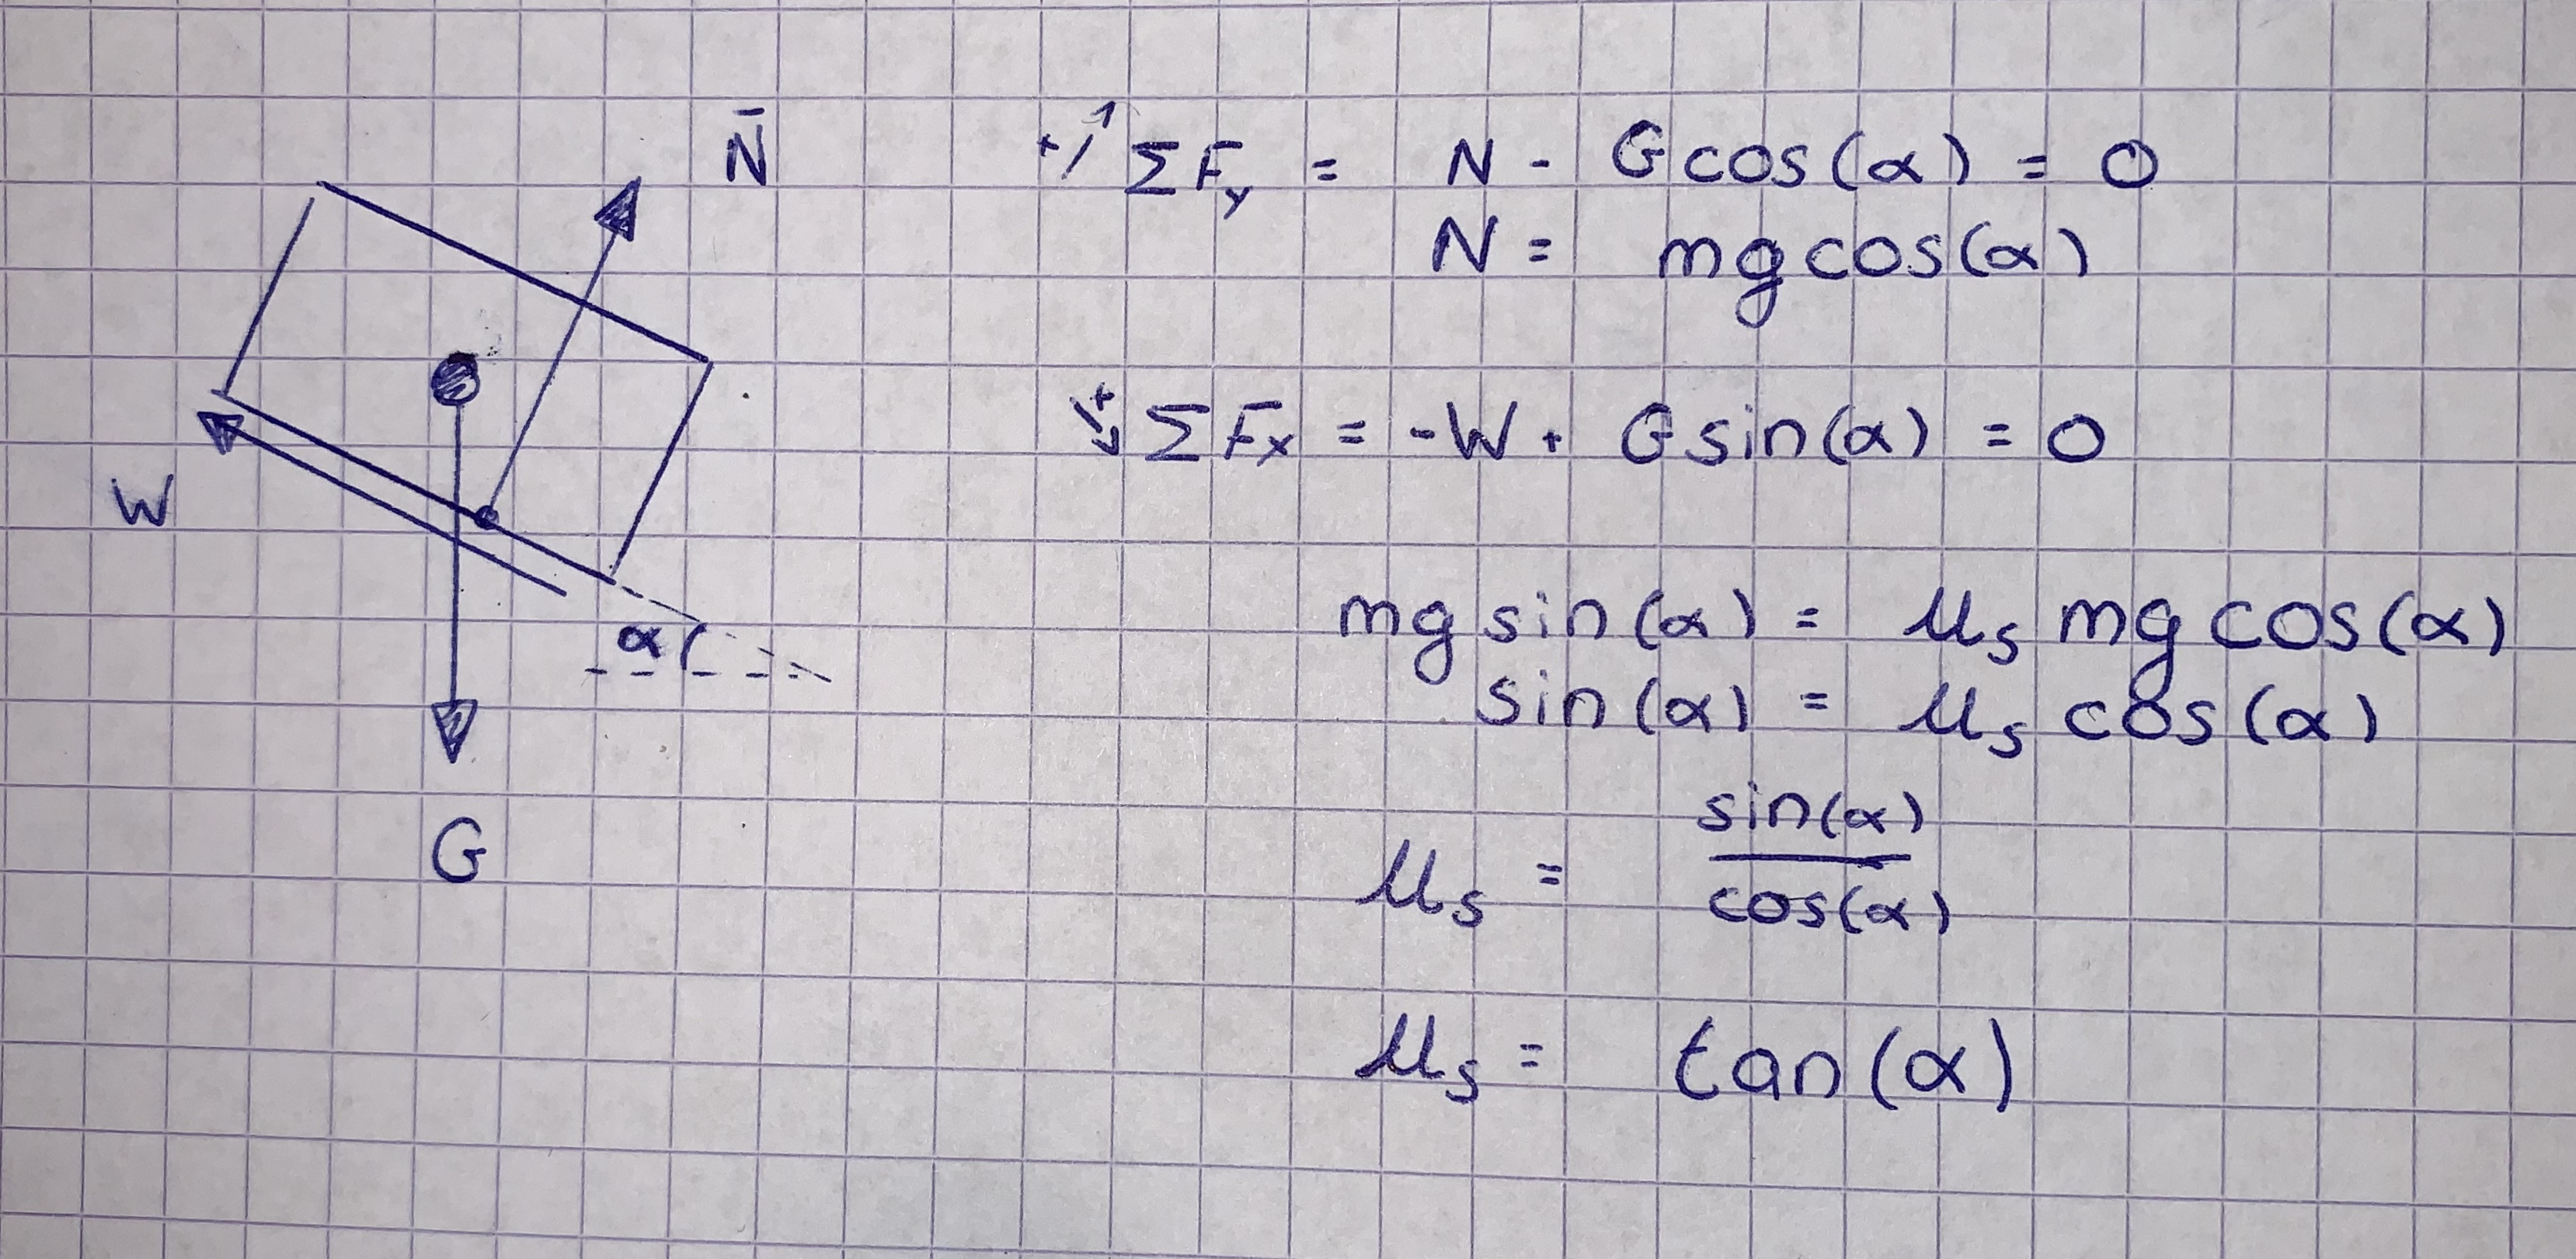 N̄
W
α
G
+↗ ΣFy = N - Gcos(α) = 0
N = mgcos(α)
+↘ ΣFx = -W + Gsin(α) = 0
mgsin(α) = μs mgcos(α)
sin(α) = μs cos(α)
μs = sin(α) / cos(α)
μs = tan(α)